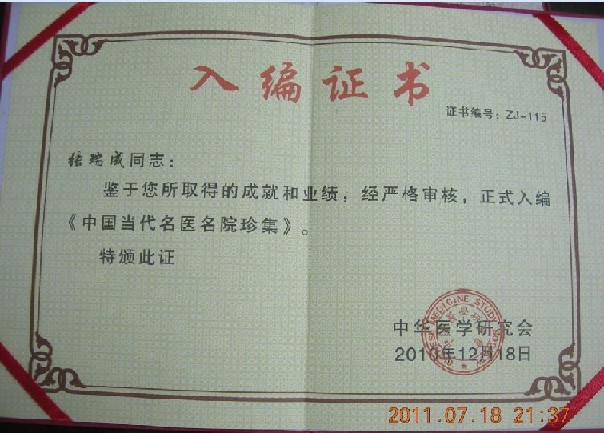 入编证书
证书编号：ZJ-115
张瑞成同志：
鉴于您所取得的成就和业绩，经严格审核，正式入编
《中国当代名医名院珍集》。
特颁此证
中华医学研究会
2010年12月18日
MEDICINE STUDY
2011.07.18 21:37